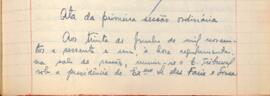 Ata da primeira sessão ordinária
Aos trinta de Junho de mil novecen-
tos e sessenta e um, à hora regulamentar,
na sala de sessões, reuniu-se o E. Tribunal
sob a presidência do Exmo Sr. Des Faria e Sousa